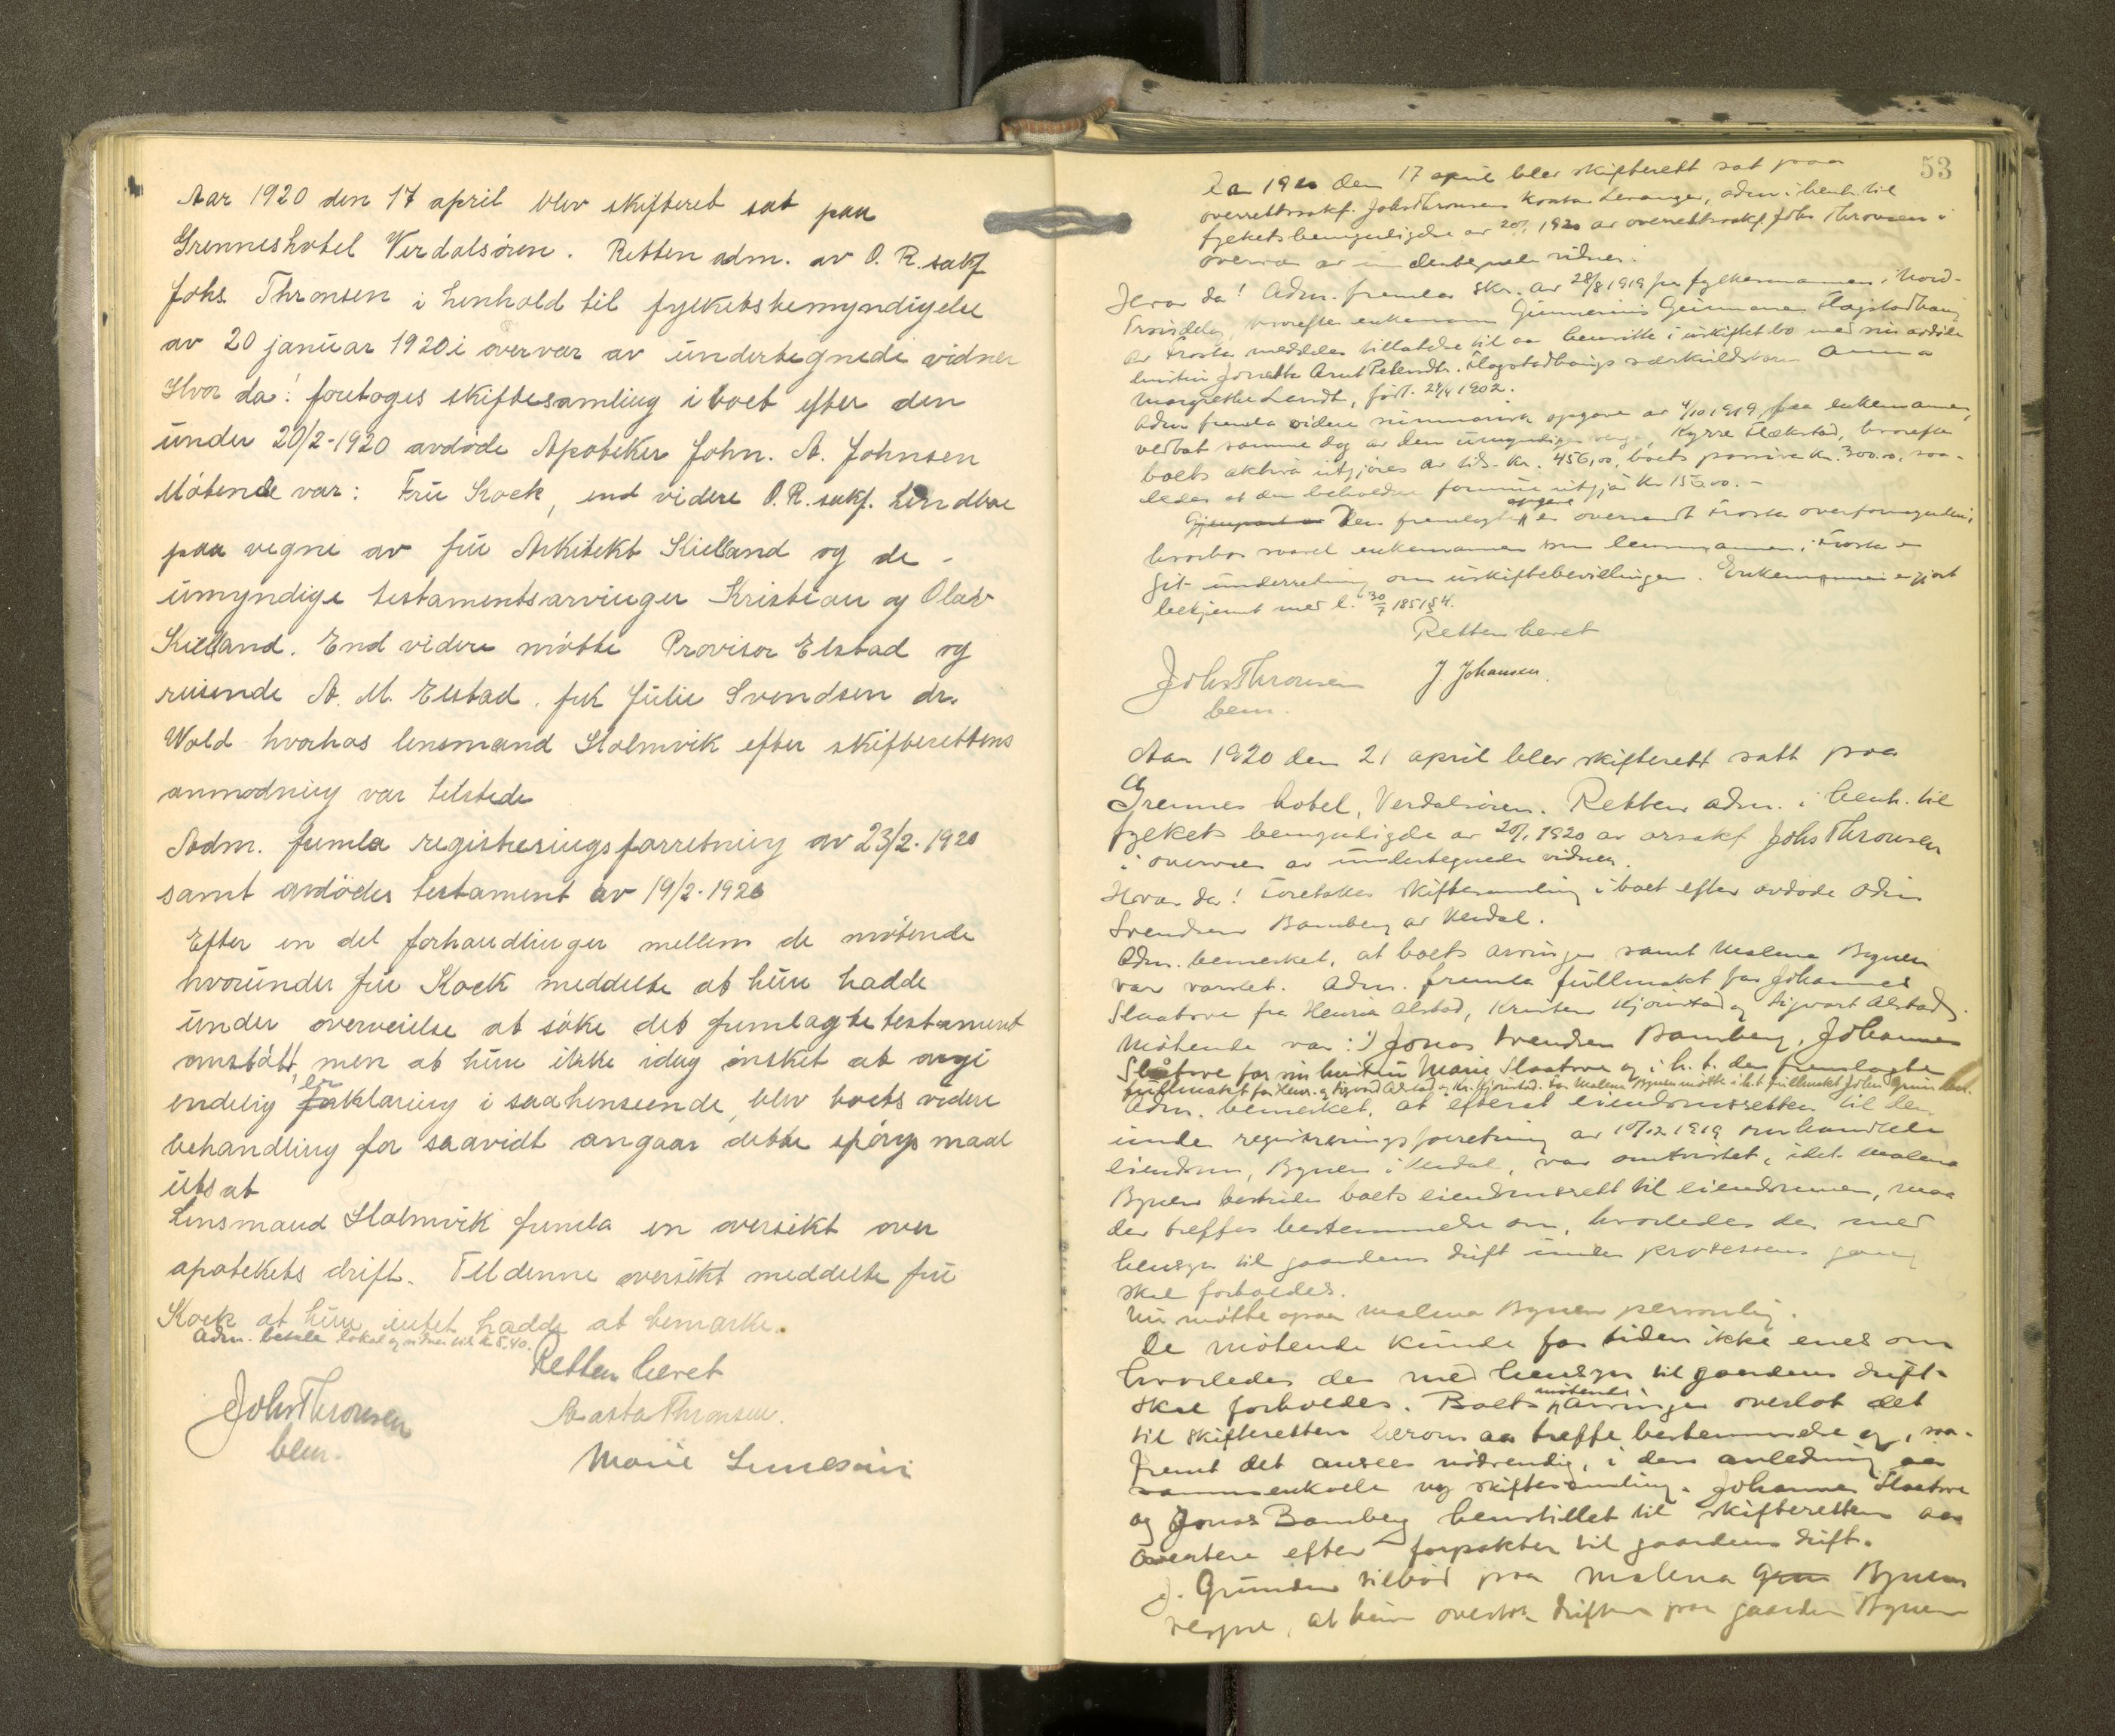 Aar 1920 den 17 april blev skifteret sat paa
Grenneshotel Verdalsören. Retten adm. av O. R. sakf
Johs Thronsen i henhold til fylketsbemyndigelse
av 20 januar 1920 i overvær av undertegnede vidner
Hvor da! foretoges skiftesamling i boet efter den
under 20/2-1920 avdöde Apoteker John. A. Johnsen
Mötende var: Fru Kock, end videre O. R. sakf. Lindboe
paa vegne av fru Arkitekt Kielland og de
umyndige testamentsarvinger Kristian og Olav
Kielland. End videre mötte Provisor Elstad og
reisende A. M. Elstad, frk Julie Svendsen dr.
Wold hvorhos lensmand Holmvik efter skifterettens
anmodning var tilstede
Adm. fremla registreringsforretning av 23/2-1920
samt avdödes testament av 19/2-1920
Efter en del forhandlinger mellem de mötende
hvorunder fru Kock meddelte at hun hadde
under overveielse at söke det fremlagte testament
omstött, men at hun ikke idag önsket at avgi
endelig erklæring i saahenseende, blev boets videre
behandling for saavidt angaar dette spörgsmaal
utsat
Lensmand Holmvik fremla en oversikt over
apotekets drift. Til denne oversikt meddelte fru
Kock at hun intet hadde at bemærke.
Adm. betalte lokal og vidner med kr 5,40.
Retten hevet
Johs Thronsen
bem.
Aasta Thronsen.
Marie
53
Aar 1920 den 17 april blev skifterett sat paa
overrettssakf. Johs Thronsens kontor Levanger, adm. i henh. til
fylkets bemyndigelse av 20/1 1920 av overrettssakf Johs Thronsen i
overvær av undertegnede vidner.
Hvor da! Adm. fremla skr. av 28/8 1919 fra fylkesmannen i Nord-
Trøndelag, hvorefter enkemann Gunnerius Flagstadhaug
av Frosta meddeles tillatelse til aa hensitte i uskiftet bo med sin avdøde
hustru særkuldsbarn Anna
Margrethe, født 24/4 1902.
Adm fremla videre summarisk opgave av 4/10 1919 fra enkemannen,
vedtat samme dag av den umyndiges verge, Kyrre Flækstad, hvorefter
boets aktiva utgjøres av tils. kr. 456,00, boets passiva kr. 300.00, saa-
ledes at den beholdne formue utgjør kr 156.00. –
Gjenpart av Den fremlagte opgave er oversendt Frosta overformynderi,
hvorhos saavel enkemannen som lensmannen i Frosta er
git underretning om uskiftebevillingen. Enkemannen er gjort
bekjent med l. 30/7 1851 § 4.
Retten hevet
Johs Thronsen
bem.
J. Johansen.
Aar 1920 den 21 april blev skifterett satt paa
Grennes hotel, Verdalsøren. Retten adm. i henh. til
fylkets bemyndigelse av 20/1 1920 av orsakf Johs Thronsen
i overvær av undertegnede vidner.
Hvor da! Foretokes skiftesamling i boet efter avdøde Odin
Svendsen Bamberg av Verdal.
Adm. bemerket, at boets arvinger samt Malena Bynen
var varslet. Adm. fremla fullmakt for Johannes
Slaatrve fra Alstad, Kristen Hjomstad og Sigvart Alstad.
Møtende var: 1) Jonas Svendsen Bamberg, Johannes
for sin hustru Marie og i h. t. den fremlagte
fullmakt for og Sigvard Alstad og Kr. For Malena Bynen møtte i h.t. fullmakt John
Adm. bemerket, at efterat eiendomsretten til den
under registreringsforretning av 10/12 1919 omhandlede
eiendom, Bynen i Verdal, var omtvistet, idet Malena
Bynen bestrider boets eiendomsrett til eiendommen, maa
der treffes bestemmelse om, hvorledes der med
hensyn til gaardens drift under prosessens gang
skal forholdes.
Nu møtte ogsaa Malena Bynen personlig.
De møtende kunde for tiden ikke enes om
hvorledes der med hensyn til gaardens drift
skal forholdes. Boets møtende arvinger overlot det
til skifteretten herom aa treffe bestemmelse og, saa-
fremt det ansees nødvendig, i den anledning aa
sammenkalle ny skiftesamling. Johannes
og Jonas Bamberg henstillet til skifteretten aa
avertere efter forpakter til gaardens drift.
J. Grunden tilbød paa Malena Bynens
vegne, at hun overtok driften paa gaarden Bynen